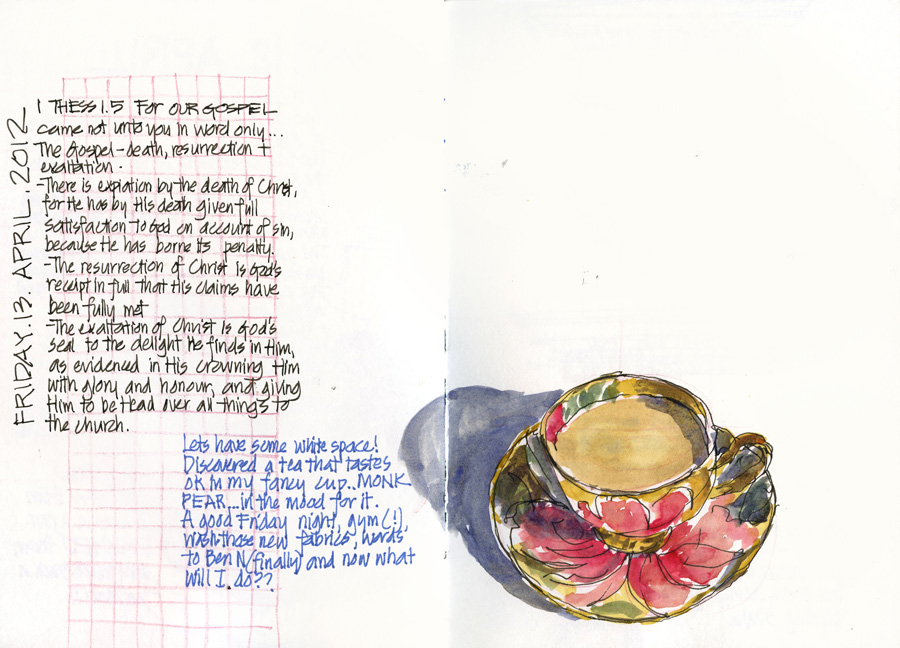 FRIDAY.13.APRIL.2012
1 THESS 1.5 FOR OUR GOSPEL
came not unto you in word only...
The Gospel - death, resurrection +
exaltation.
- There is expiation by the death of Christ,
for He has by His death given full
satisfaction to God on account of sin,
because He has borne its penalty.
- The resurrection of Christ is God's
receipt in full that His claims have
been fully met
- The exaltation of Christ is God's
seal to the delight He finds in Him,
as evidenced in His crowning Him
with glory and honour, and giving
Him to be Head over all things to
the church.
Lets have some white space!
Discovered a tea that tastes
ok in my fancy cup.. MONK
PEAR... in the mood for it.
A good Friday night, gym (!),
wash those new fabrics, words
to Ben N (finally) and now what
will I do??